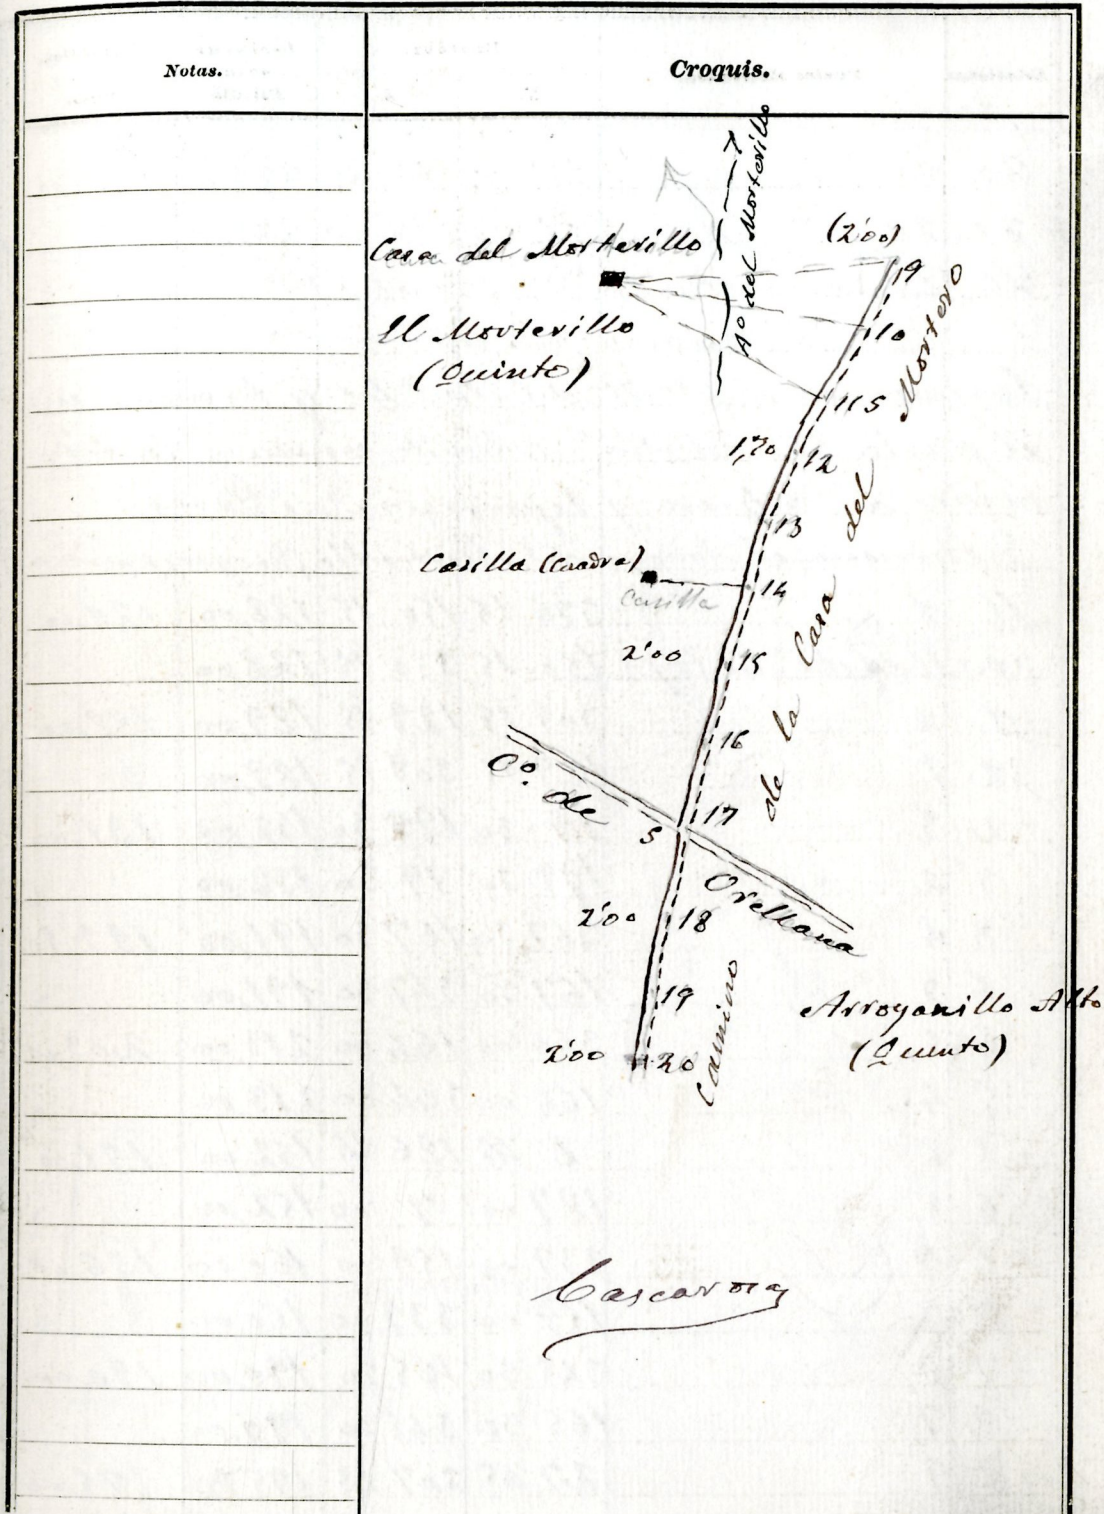 Notas.
Croquis.
Aº del Morterillo
Casa del Morterillo
(2'00)
9
El Morterillo
(Quinto)
10
115
1,70
12
13
Casilla (Cuadra)
Casilla
14
2'00
15
16
Cº. de
Orellana
17
5
2'00
18
19
2'00
20
Camino de la Casa del Mortero
Arroyanillo Alto
(Quinto)